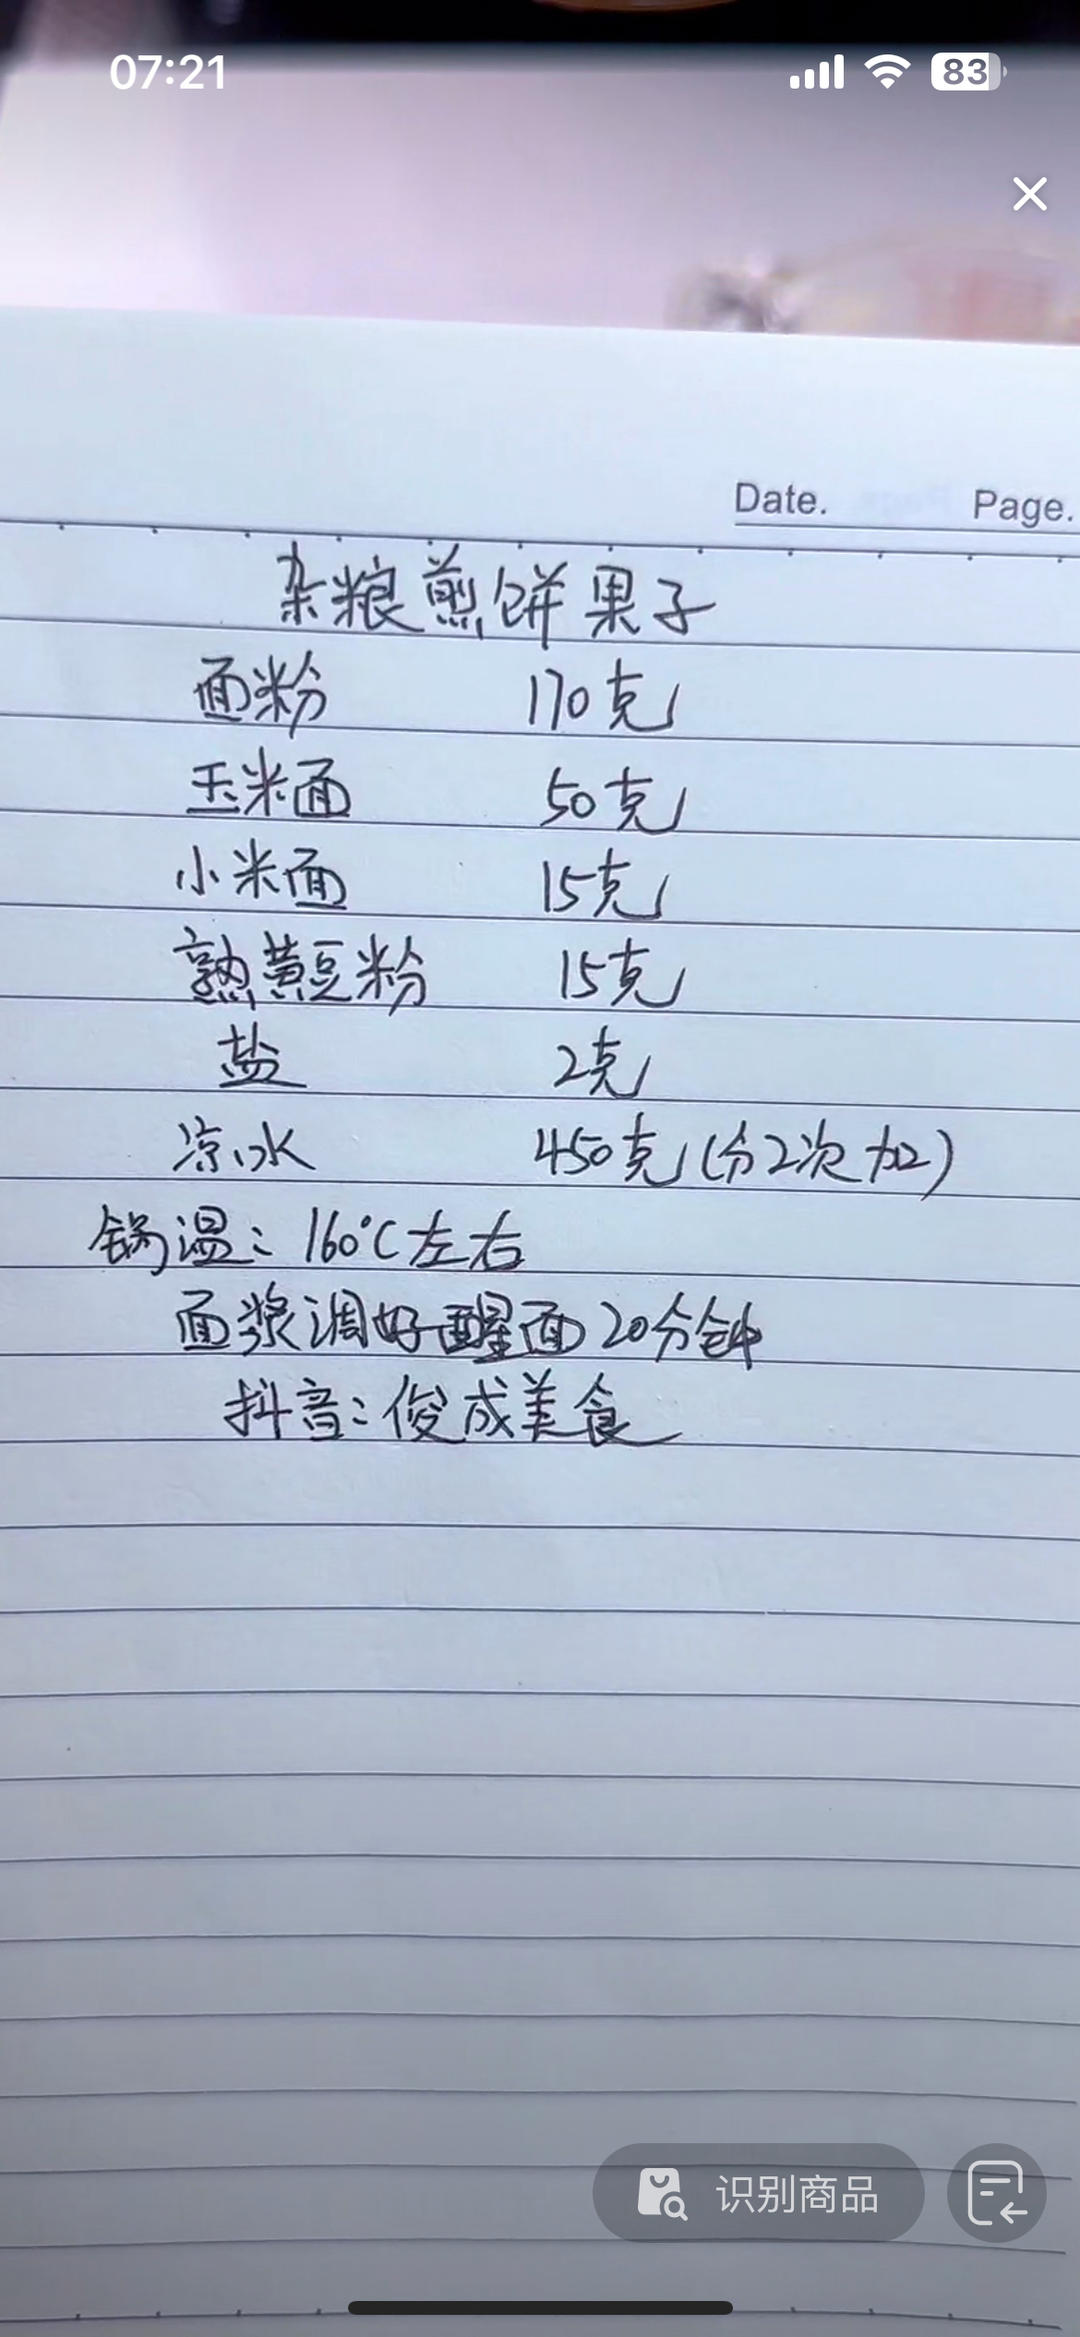 07:21 83
Date. Page.
杂粮煎饼果子
面粉 170克
玉米面 50克
小米面 15克
熟黄豆粉 15克
盐 2克
凉水 450克(分2次加)
锅温: 160°C左右
面浆调好醒面20分钟
抖音:俊成美食
识别商品